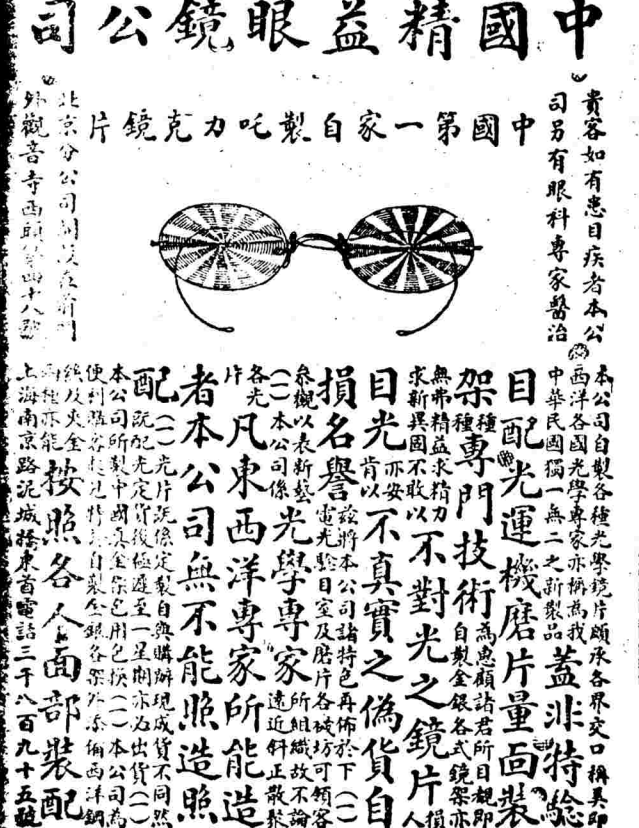 中國精益眼鏡公司
貴客如有患目疾者本公
司另有眼科專家醫治
中國第一家自製吒力克鏡片
北京分公司開設在前門
外觀音寺西頭第四十八號
本公司自製各種光學鏡片頗承各界交口稱美即
西洋各國光學專家亦稱為我
中華民國獨一無二之新製品
蓋非特驗
目配光運機磨片量面裝
架種種專門技術
為惠顧諸君所目覩即
自製金銀各式鏡架亦
無弗精益求精力
求新異固不敢以
不對光之鏡片損人
目光亦安肯以不真實之偽貨自
損名譽
茲將本公司諸特色再佈於下(一)
電光驗目室及磨片各坊可領客
參觀以表新藝
(一)本公司係
光學專家
所組織故不論
遠近斜正散聚
各光片
凡東西洋專家所能造
者本公司無不能照造照
配
(一)光片既係定製自與購辦現成貨不同然
既配光定貨後極遲至一星期亦必出貨(一)
本公司所製中國真金架包用包換(一)本公司為
便利購客起見特自製金銀各架外添備西洋鋼
絲及夾金
兩種亦能
按照各人面部裝配
上海南京路泥城橋東首電話三千八百九十五號